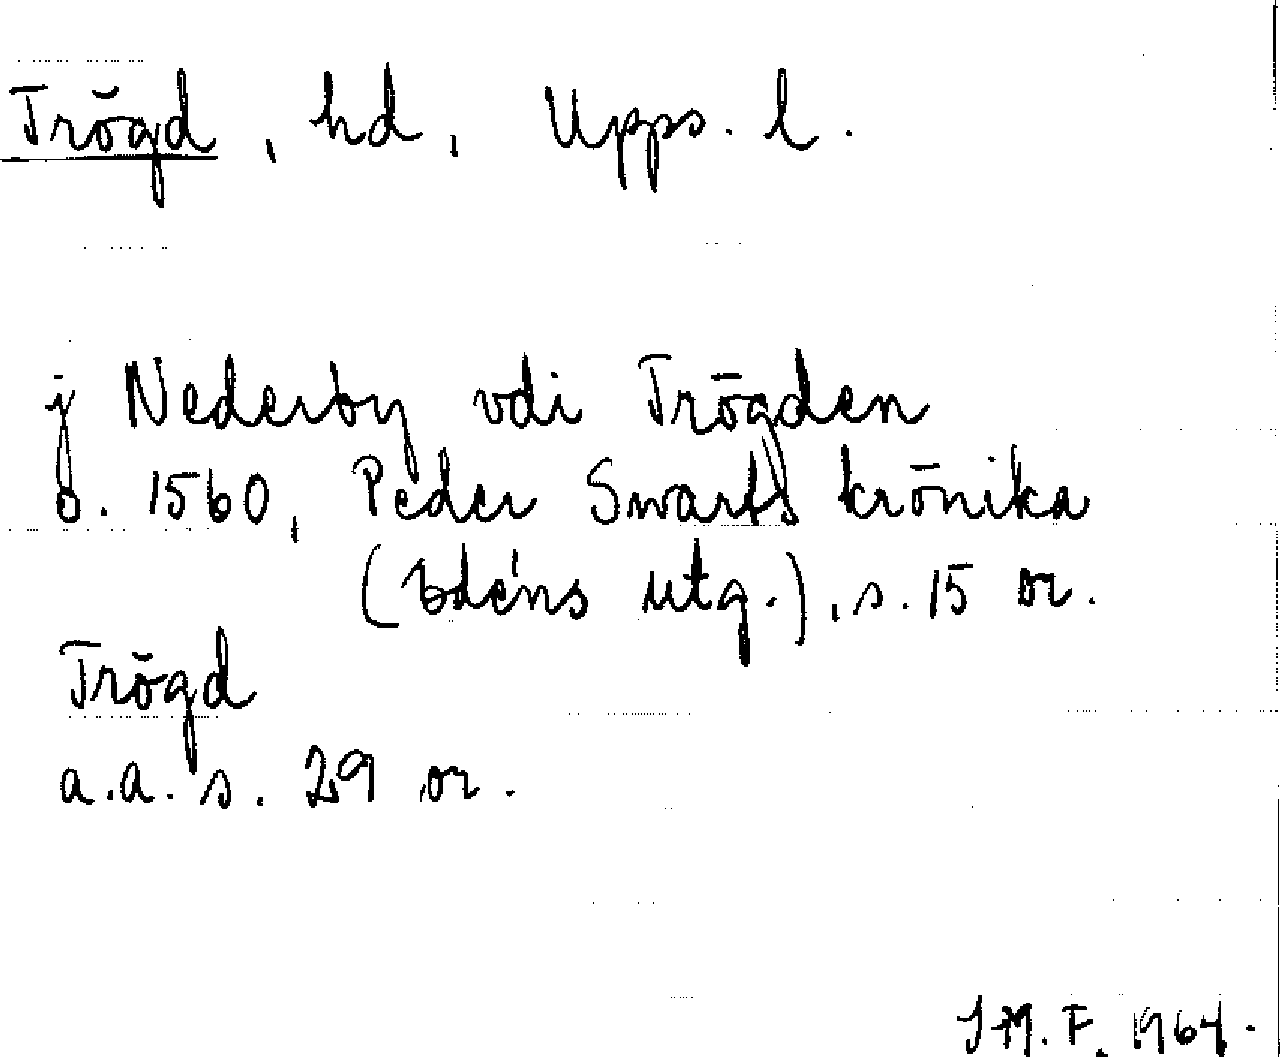 Trögd, hd, Upps. l.
j Nederby vdi Trögden
o. 1560, Peder Swarts krönika
(Edéns utg.), s. 15 or.
Trögd
a.a. s. 29 or.
I M. F. 1964.